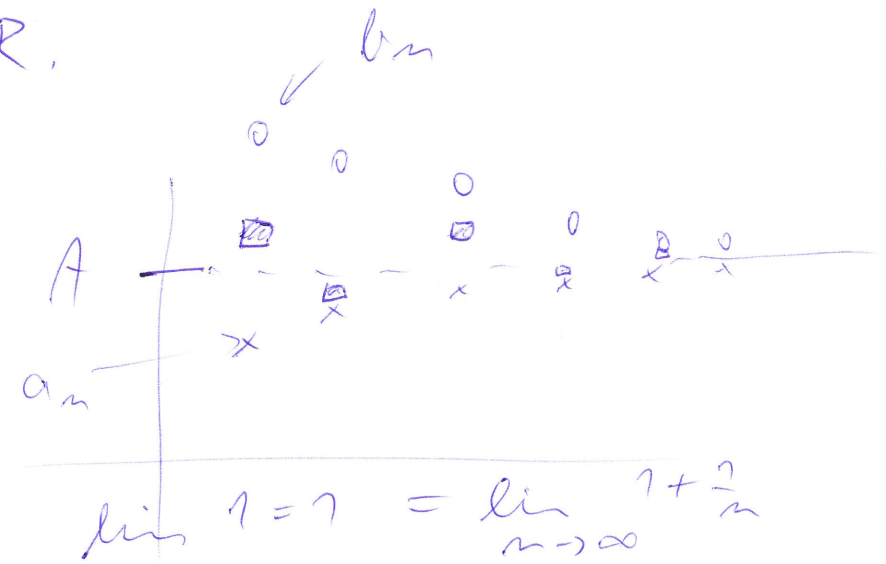 R.
bₙ
A
aₙ
lim 1 = 1 = lim_{n→∞} 1 + 1/n